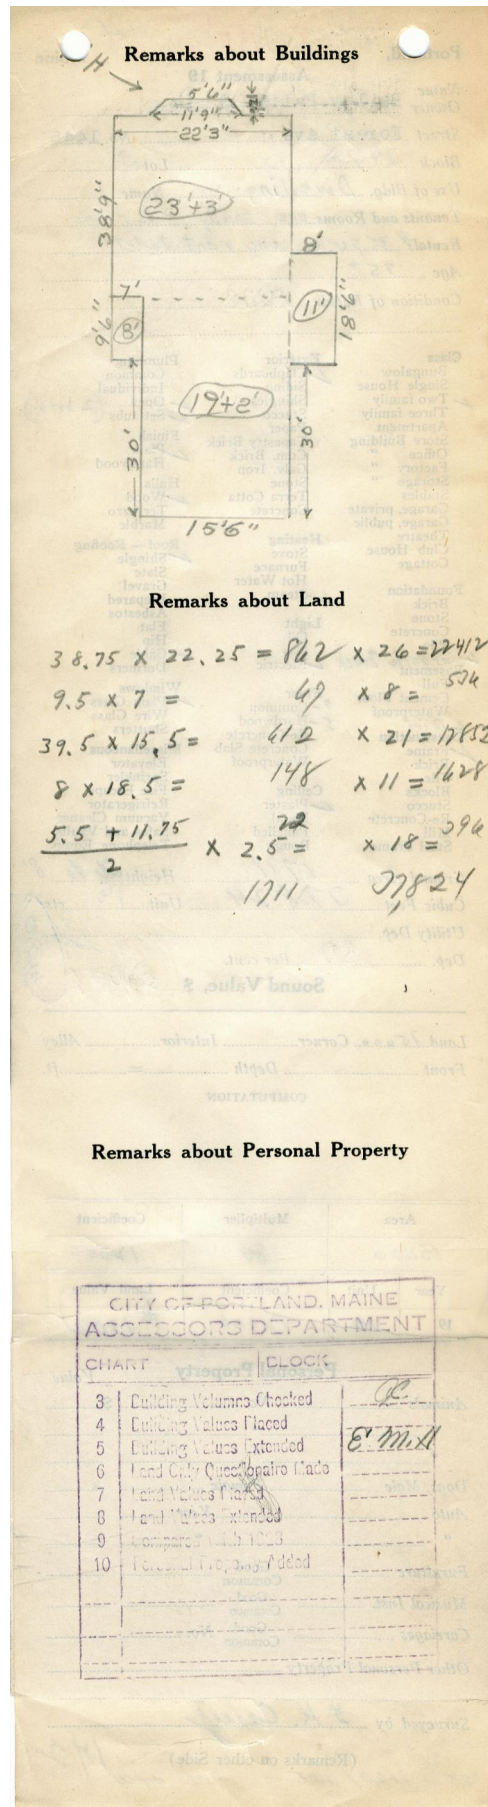 Remarks about Buildings
H
5'6"
11'9"
22'3"
38'9"
23'+3'
8'
7'
9'6"
8'
11'
18'6"
19'+2'
30'
30'
15'6"
Remarks about Land
38.75 x 22.25 = 862 x 26 = 22412
9.5 x 7 = 67 x 8 = 536
39.5 x 15.5 = 612 x 21 = 12852
8 x 18.5 = 148 x 11 = 1628
5.5 + 11.75
2
x 2.5 = 22 x 18 = 396
1711 37824
Remarks about Personal Property
CITY OF PORTLAND, MAINE
ASSESSORS DEPARTMENT
CHART BLOCK
3 Building Volumns Checked
4 Building Values Placed
5 Building Values Extended E.M.H
6 Land Only Questionaire Made
7 Land Values Placed
8 Land Values Extended
9 Compared With 1923
10 Personal Property Added